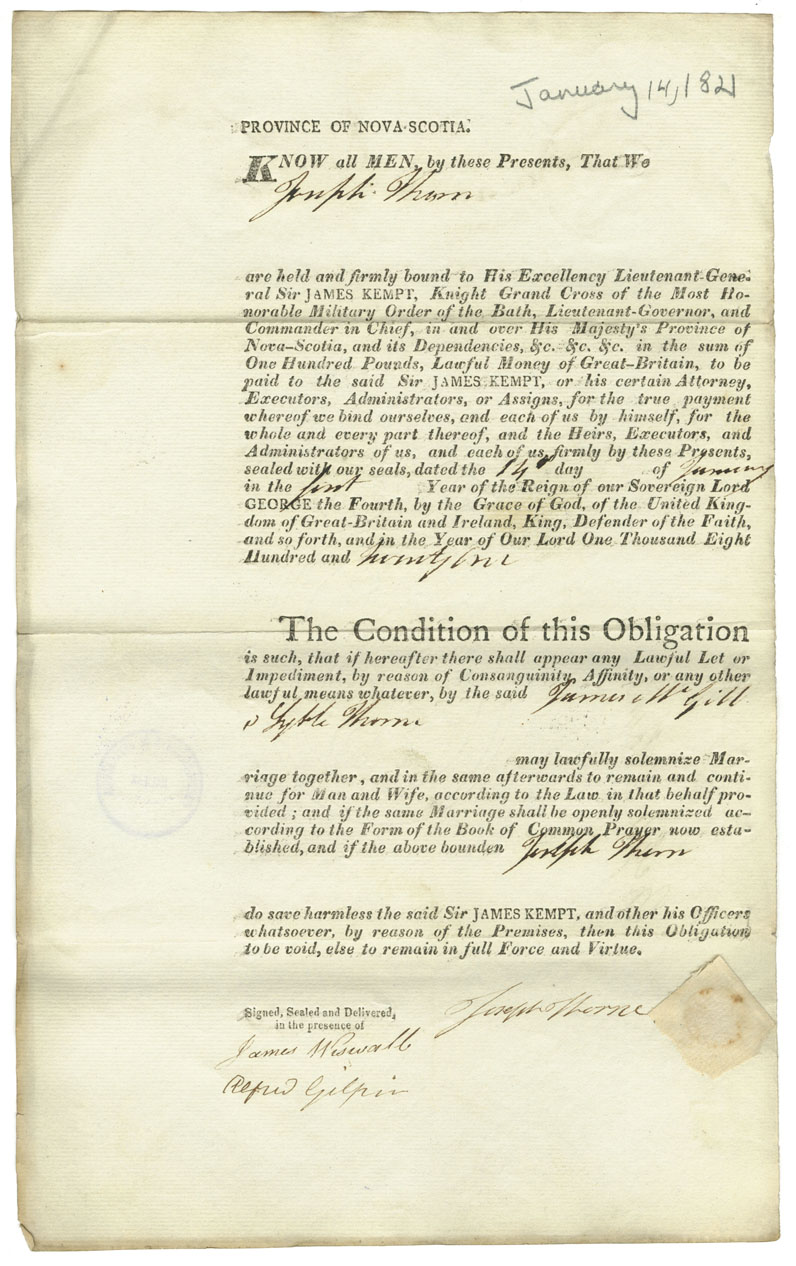 January 14, 1821
PROVINCE OF NOVA-SCOTIA.
KNOW all MEN, by these Presents, That We
Joseph Thorn
are held and firmly bound to His Excellency Lieutenant-Gene-
ral Sir JAMES KEMPT, Knight Grand Cross of the Most Ho-
norable Military Order of the Bath, Lieutenant-Governor, and
Commander in Chief, in and over His Majesty's Province of
Nova-Scotia, and its Dependencies, &c. &c. &c. in the sum of
One Hundred Pounds, Lawful Money of Great-Britain, to be
paid to the said Sir JAMES KEMPT, or his certain Attorney,
Executors, Administrators, or Assigns, for the true payment
whereof we bind ourselves, and each of us by himself, for the
whole and every part thereof, and the Heirs, Executors, and
Administrators of us, and each of us, firmly by these Presents,
sealed with our seals, dated the 14 day of January
in the first Year of the Reign of our Sovereign Lord
GEORGE the Fourth, by the Grace of God, of the United King-
dom of Great-Britain and Ireland, King, Defender of the Faith,
and so forth, and in the Year of Our Lord One Thousand Eight
Hundred and twenty one
The Condition of this Obligation
is such, that if hereafter there shall appear any Lawful Let or
Impediment, by reason of Consanguinity, Affinity, or any other
lawful means whatever, by the said James McGill
& Syble Thorne
may lawfully solemnize Mar-
riage together, and in the same afterwards to remain and conti-
nue for Man and Wife, according to the Law in that behalf pro-
vided; and if the same Marriage shall be openly solemnized ac-
cording to the Form of the Book of Common Prayer now esta-
blished, and if the above bounden Joseph Thorn
do save harmless the said Sir JAMES KEMPT, and other his Officers
whatsoever, by reason of the Premises, then this Obligation
to be void, else to remain in full Force and Virtue.
Signed, Sealed and Delivered,
in the presence of
Joseph Thorne
James Wiswall
Alfred Gilpin